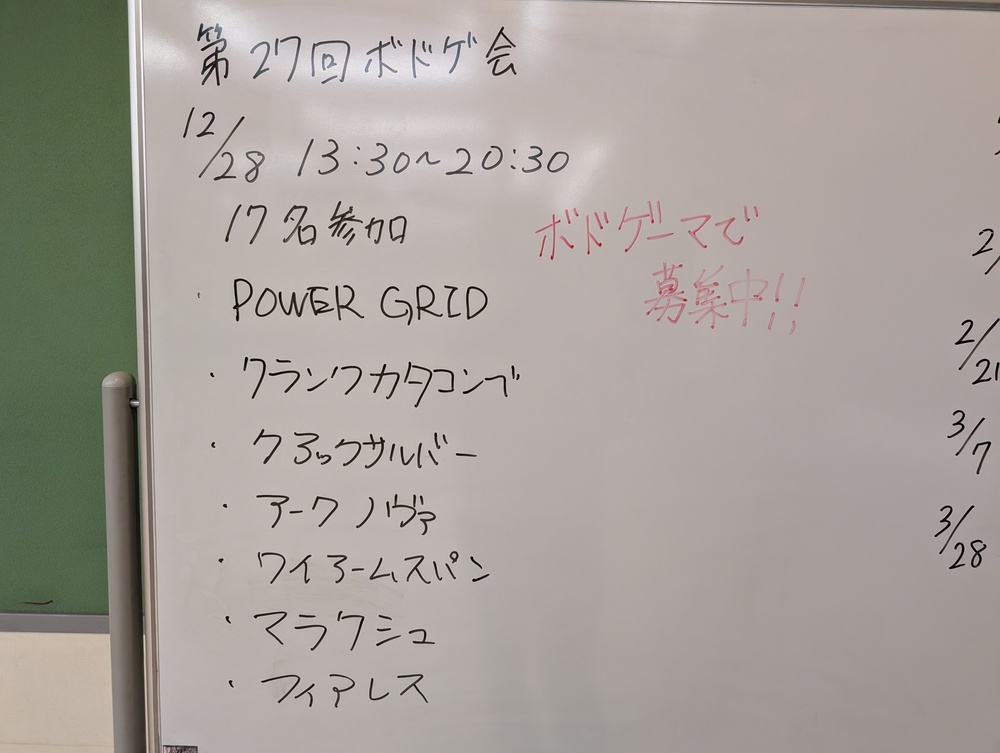 第27回ボドゲ会
12/28 13:30~20:30
17名参加
ボドゲーマで
募集中!!
・POWER GRID
・クランクカタコンブ
・クアックサルバー
・アークノヴァ
・ワイアームスパン
・マラケシュ
・フィアレス
2/
2/21
3/7
3/28